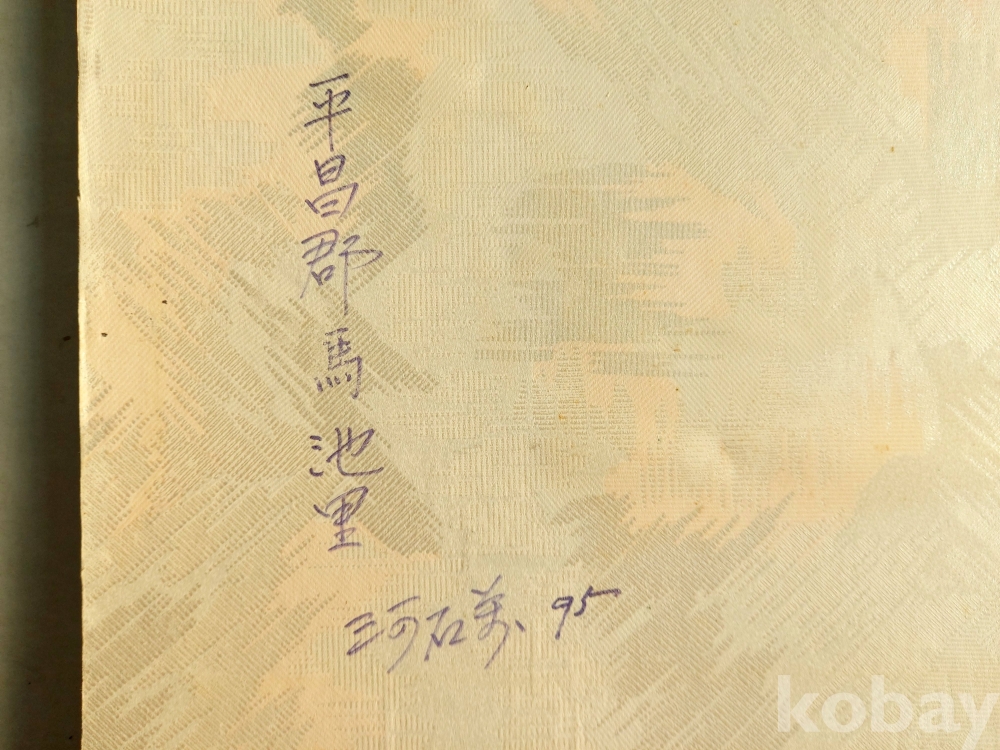 平昌郡 馬池里
河石萬、95
kobay